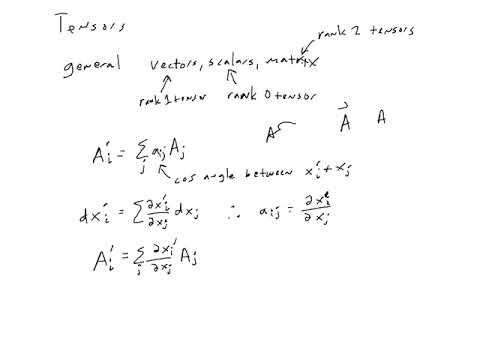 Tensors
rank 2 tensors
general vectors, scalars, matrix
rank 1 tensor rank 0 tensor
A A⃗ A
A_i' = Σ_j a_ij A_j
cos angle between x_i' + x_j
dx_i' = Σ ∂x_i'/∂x_j dx_j ∴ a_ij = ∂x_i'/∂x_j
A_i' = Σ_j ∂x_i'/∂x_j A_j